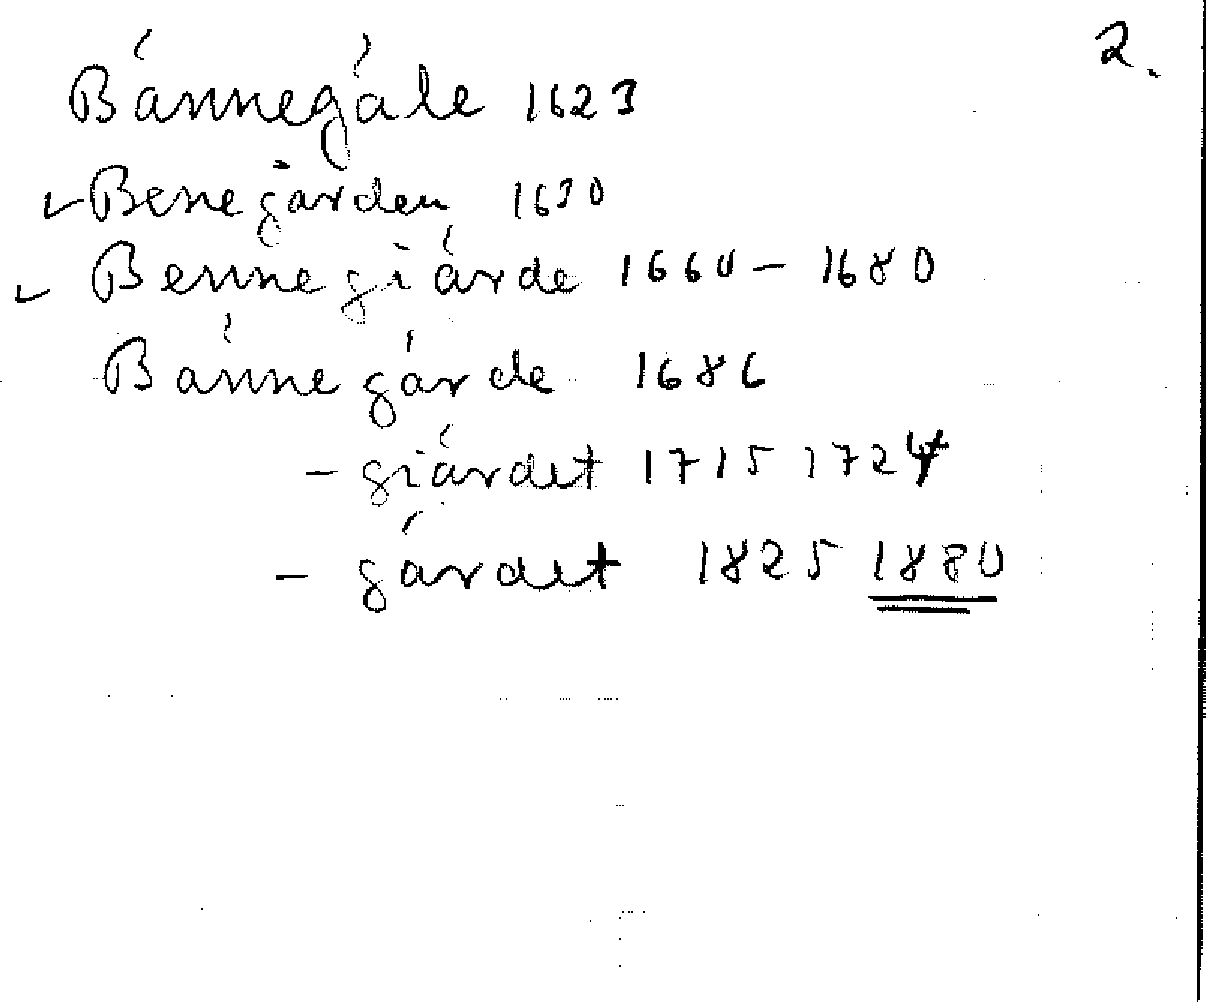 2.
Bánnegåle 1623
✓ Benegården 1630
✓ Bennegiärde 1660 – 1680
Bánnegärde 1686
– giärdet 1715 1724
– gärdet 1825 1880